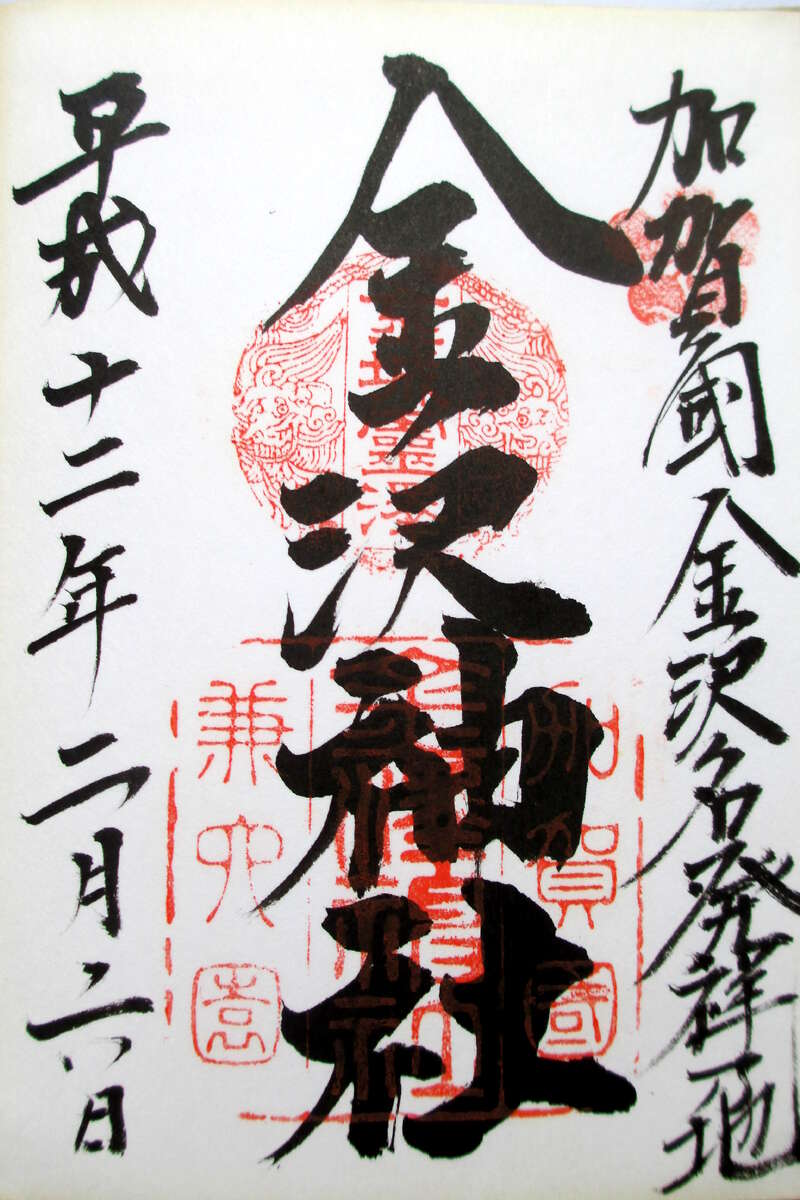 加賀國金沢名発祥之地
金沢神社
平成十二年二月二六日
加賀國
兼六園